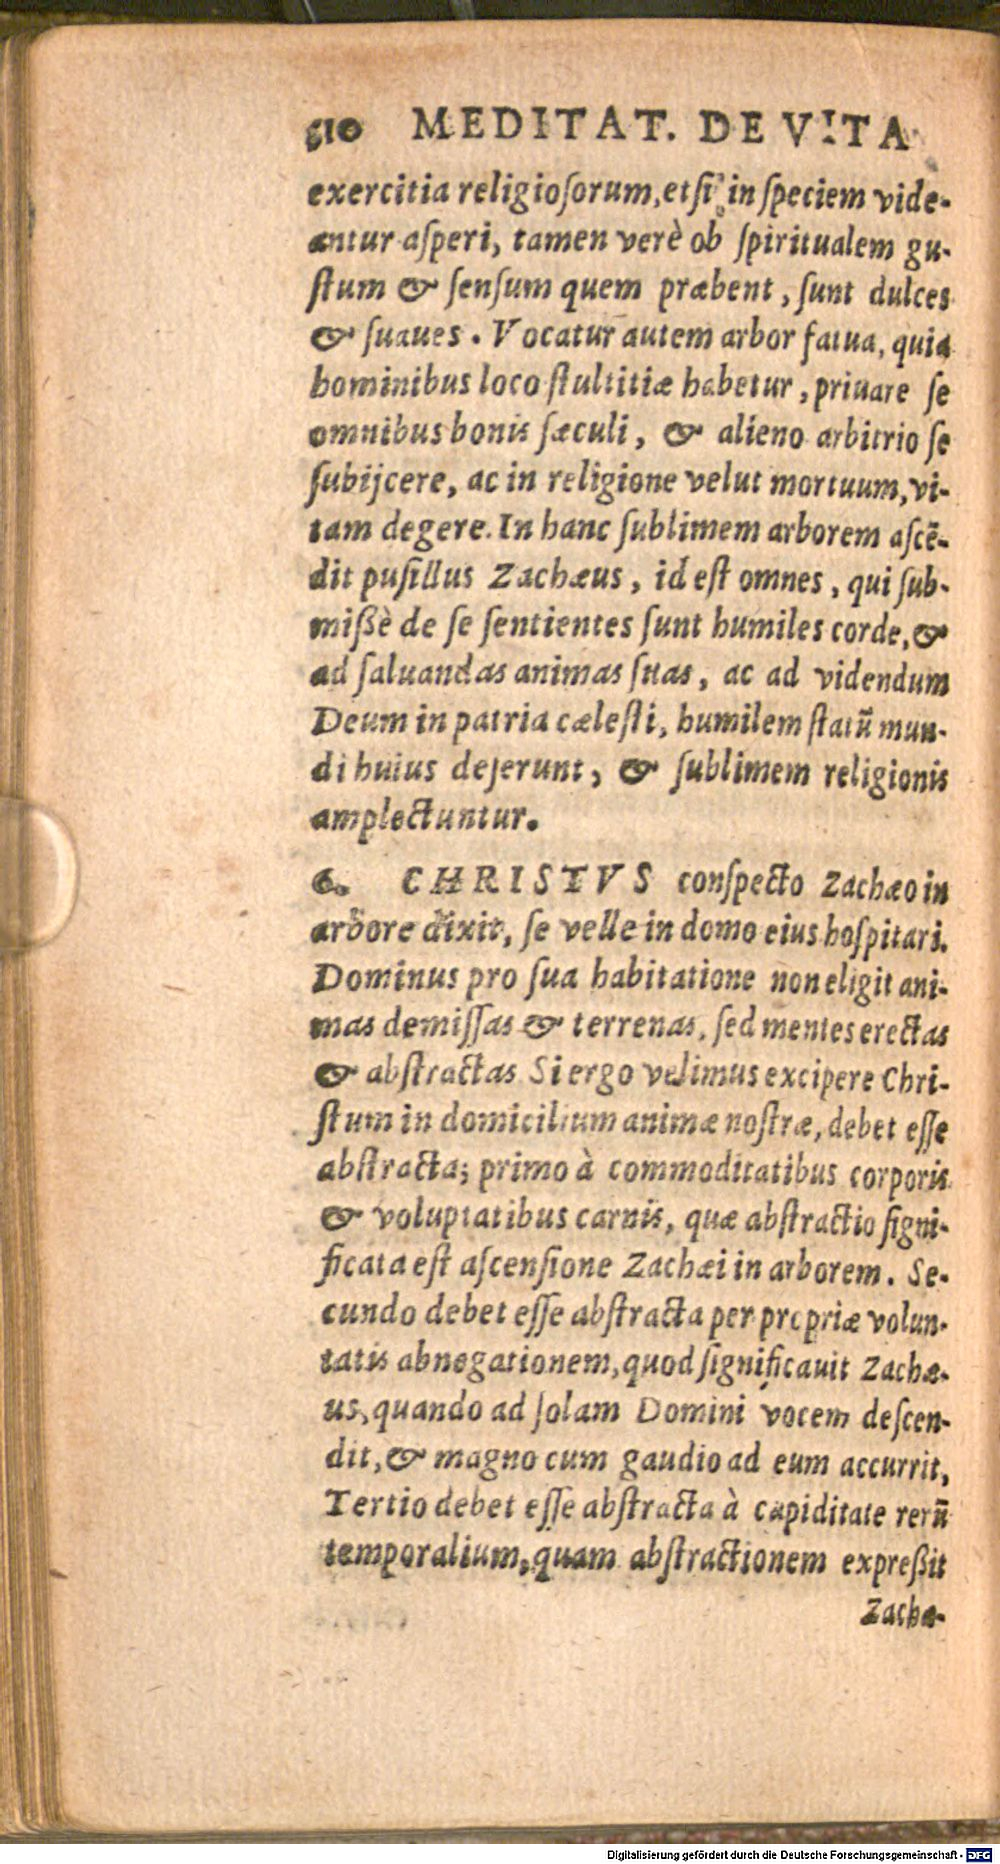 510 MEDITAT. DE VITA
exercitia religioſorum, etſi in ſpeciem vide-
antur aſperi, tamen verè ob ſpiritualem gu-
ſtum & ſenſum quem præbent, ſunt dulces
& ſuaues. Vocatur autem arbor fatua, quia
hominibus loco ſtultitiæ habetur, priuare ſe
omnibus bonis ſæculi, & alieno arbitrio ſe
ſubijcere, ac in religione velut mortuum, vi-
tam degere. In hanc ſublimem arborem aſcē-
dit puſillus Zachæus, id eſt omnes, qui ſub-
mißè de ſe ſentientes ſunt humiles corde, &
ad ſaluandas animas ſuas, ac ad videndum
Deum in patria cæleſti, humilem ſtatū mun-
di huius deſerunt, & ſublimem religionis
amplectuntur.
6. CHRISTVS conſpecto Zachæo in
arbore dixit, ſe velle in domo eius hoſpitari.
Dominus pro ſua habitatione non eligit ani-
mas demiſſas & terrenas, ſed mentes erectas
& abſtractas. Si ergo velimus excipere Chri-
ſtum in domicilium animæ noſtræ, debet eſſe
abſtracta; primo à commoditatibus corporis
& voluptatibus carnis, quæ abſtractio ſigni-
ficata eſt aſcenſione Zachæi in arborem. Se-
cundo debet eſſe abſtracta per propriæ volun-
tatis abnegationem, quod ſignificauit Zachæ-
us, quando ad ſolam Domini vocem deſcen-
dit, & magno cum gaudio ad eum accurrit,
Tertio debet eſſe abſtracta à cupiditate rerū
temporalium, quam abſtractionem expreßit
Zachæ-
Digitalisierung gefördert durch die Deutsche Forschungsgemeinschaft - DFG